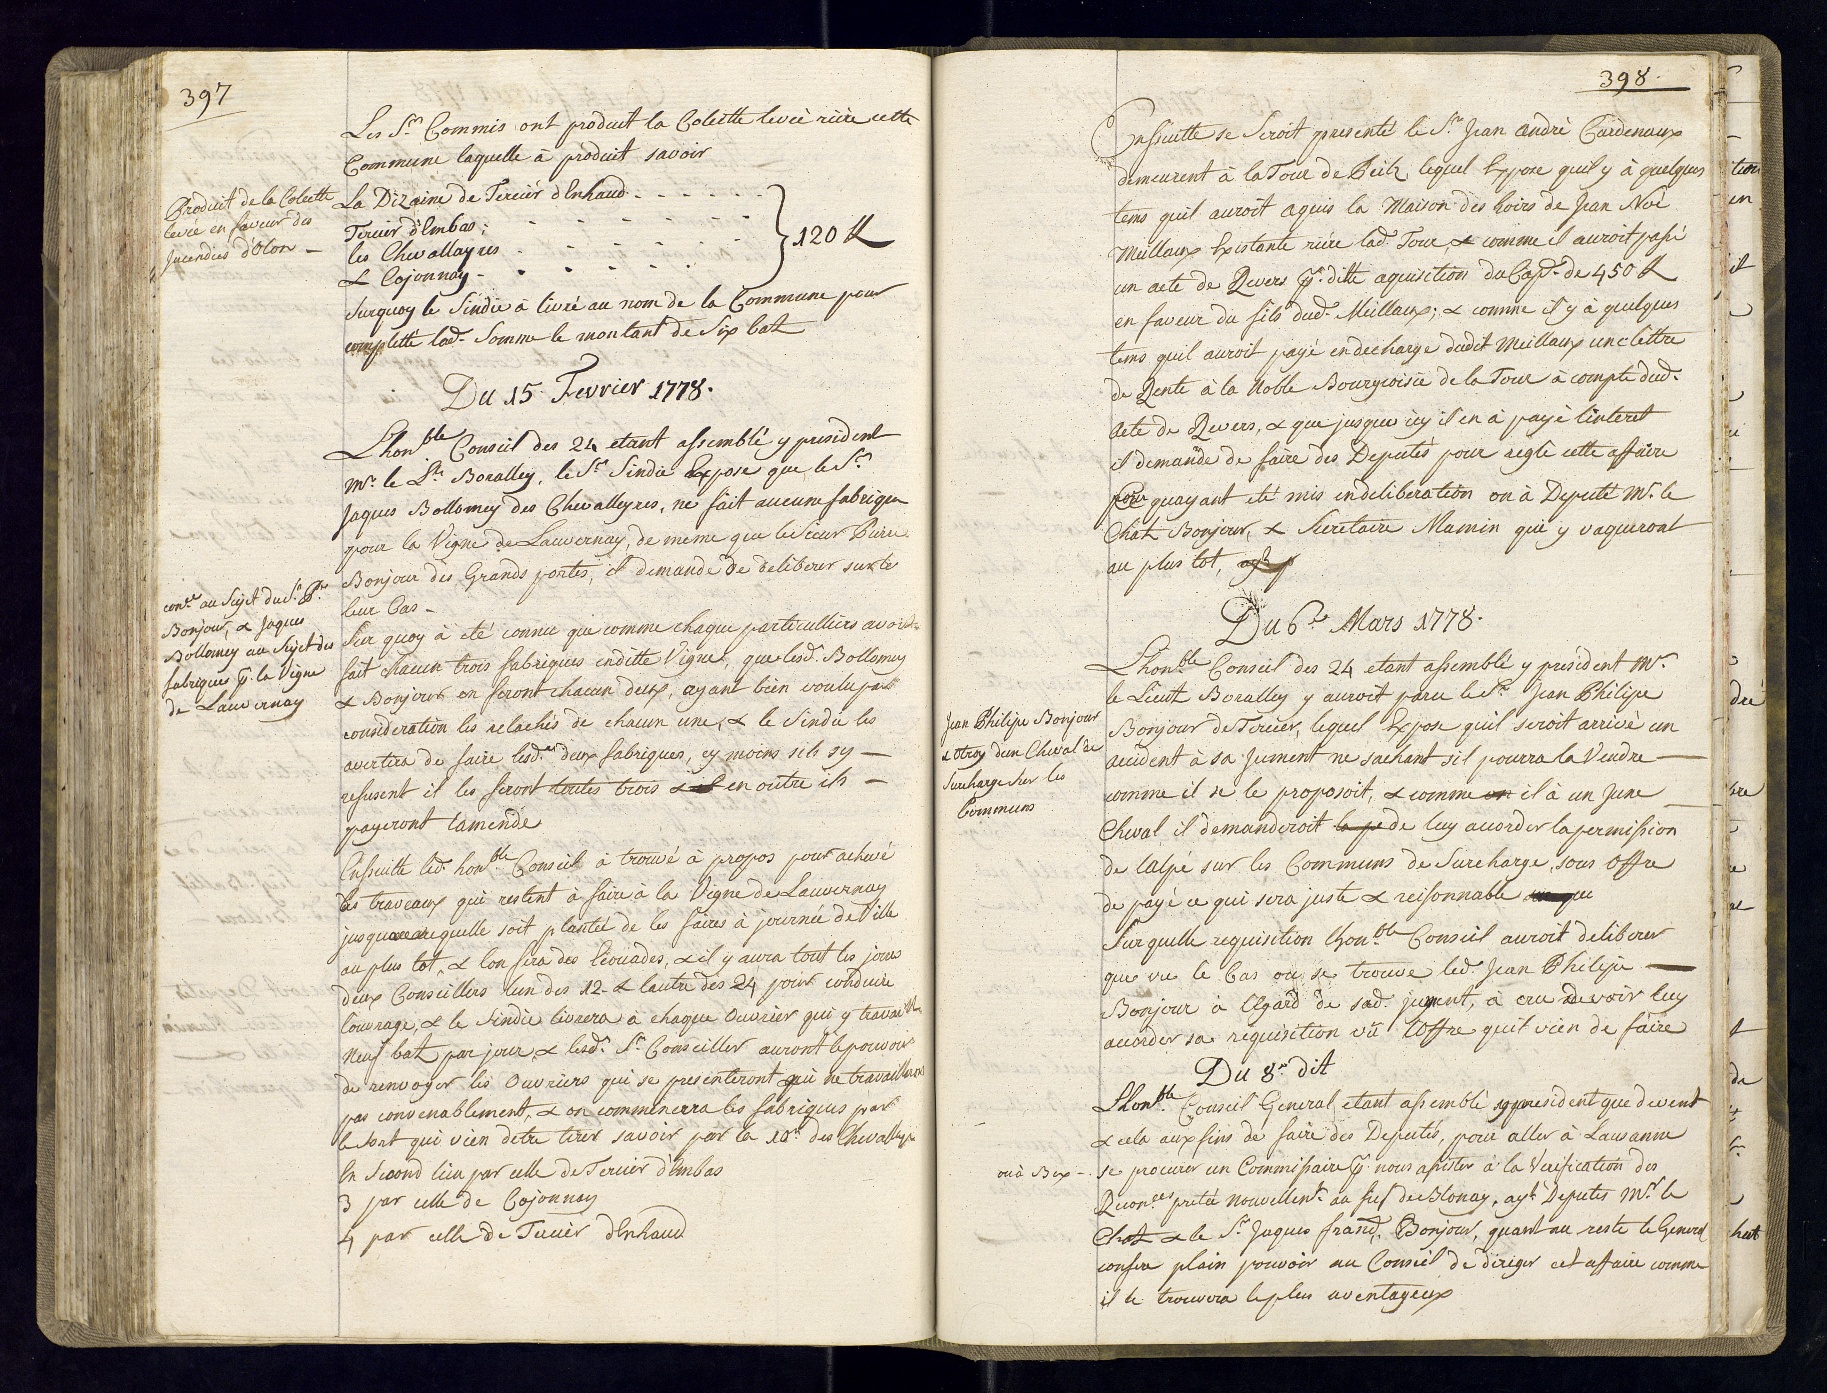 397
Les Srs Commis ont produit la Colette levée riére cette
Commune laquelle à produit savoir
Produit de la Colette
levée en faveur des
Incendiés d'Olon –
La Dizaine de Tercier d'Enhaud - - - - -
Tercier d'Embas; - - - - - -
les Chevalleyres - - - - - -
& Cojonnay - - - - - -
120 ff
Surquoy le Sindic à livré au nom de la Commune pour
complette lad. Somme le montant de Six batz
Du 15 Fevrier 1778.
L'honble Conseil des 24 etant assemblé y president
Mr. le Lt. Boralley, le Sr Sindic Expose que le Sr
Jaques Bollomey des Chevalleyres, ne fait aucune fabrique
pour la Vigne de Lauvernay, de meme que le Sieur Pierre
Bonjour des Grands portes, il demande de deliberer sur les
leur Cas –
conce. au Sujet du Sr. Pre.
Bonjour, & Jaques
Bollomey au Sujet des
fabriques pr. la Vigne
de Lauvernay
Sur quoy à eté connu que comme chaque particulliers avoit
fait chacun trois fabriques enditte Vigne, que lesd. Bollomey
& Bonjour en feront chacun deux, ayant bien voulu par
consideration les relachés de chacun une, & le Sindic les
avertira de faire lesdes. deux fabriques, ey moins s'ils sy —
refusent il les feront toutes trois & il en outre ils —
payeront l'amende
Ensuitte led. honble. Conseil à trouvé à propos pour achevé
les travaux qui restent à faire à la Vigne de Lauvernay
jusqua quelle soit planté de les faires à journée de Ville
au plus tot, & lon fera des Crouades, & il y aura tout les jours
deux Conseillers lun des 12. & lautre des 24 pour conduire
louvrage, & le Sindic livrera à chaque Ouvrier qui y travaille
Neuf batz par jour & lesd. Sr. Conseiller auront le pouvoir
de renvoyer les Ouvriers qui se presenteront qui ne travailleront
pas convenablement, & on commencera les fabriques par
le Sort qui vien detre tirer savoir par la 10e des Chevalleyres
En Second lieu par celle de Tercier d'Embas
3 par celle de Cojonnay
4 par celle de Tercier dEnhaud
398
Ensuitte se Seroit presenté le Sr. Jean André Cardenaux
demeurent à la Tour de Peilz, lequel Expose quil y à quelques
tems quil auroit aquis la Maison des hoirs de Jean Noé
Meillaux Existante riére lad. Tour, & comme il auroit passé
un acte de Revers pr. ditte aquisition du Capl. de 450 ff
en faveur du fils dud. Meillaux; & comme il y à quelques
tems quil auroit payé en decharge dudit Meillaux une lettre
de Rente à la Noble Bourgeoisie de la Tour à compte dud.
acte de Revers, & que jusque icy il en à payé l'interet
il demande de faire des Deputés pour regle cette affaire
Ce quayant eté mis en deliberation on à Deputé Mr. le
Chat. Bonjour, & Secretaire Mamin qui y vaqueront
au plus tot,
Du 6e Mars 1778.
L'honble Conseil des 24 etant assemblé y président Mr.
le Lieut Boralley y auroit paru le Sr. Jean Philipe
Bonjour de Tercier, lequel Expose quil seroit arrivé un
accident à sa Jument ne sachant s'il pourra la Vendre —
Jean Philipe Bonjour
Otroy d'un Cheval de
Surcharge Sur les
Communs
comme il se le proposoit, & comme on il à un June —
Cheval il demanderoit de luy accorder la permission
de lalpé sur les Communs de Surcharge, sous Offre
de payé ce qui sera juste & reisonnable
Sur quelle requisition lhonble Conseil auroit deliberer
que vu le Cas ou se trouve led. Jean Philipe —
Bonjour à l'Egard de sad. jument, à cru devoir luy
accorder sa requisition vû l'Offre quil vien de faire
Du 8e dit
L'honble. Conseil General etant assemblé y president que devent
& cela aux fins de faire des Deputés, pour aller à Lausanne
ou à Bex –
se procurer un Commissaire pr. nous assister à la Verification des
Reconces pretée nouvellemt. au fief de Blonay, ayt. Deputés Mr. le
Chat. & le Sr. Jaques frand. Bonjour, quant au reste le General
confere plain pouvoir au Conseil de diriger cet affaire comme
il le trouvera le plus aventageux